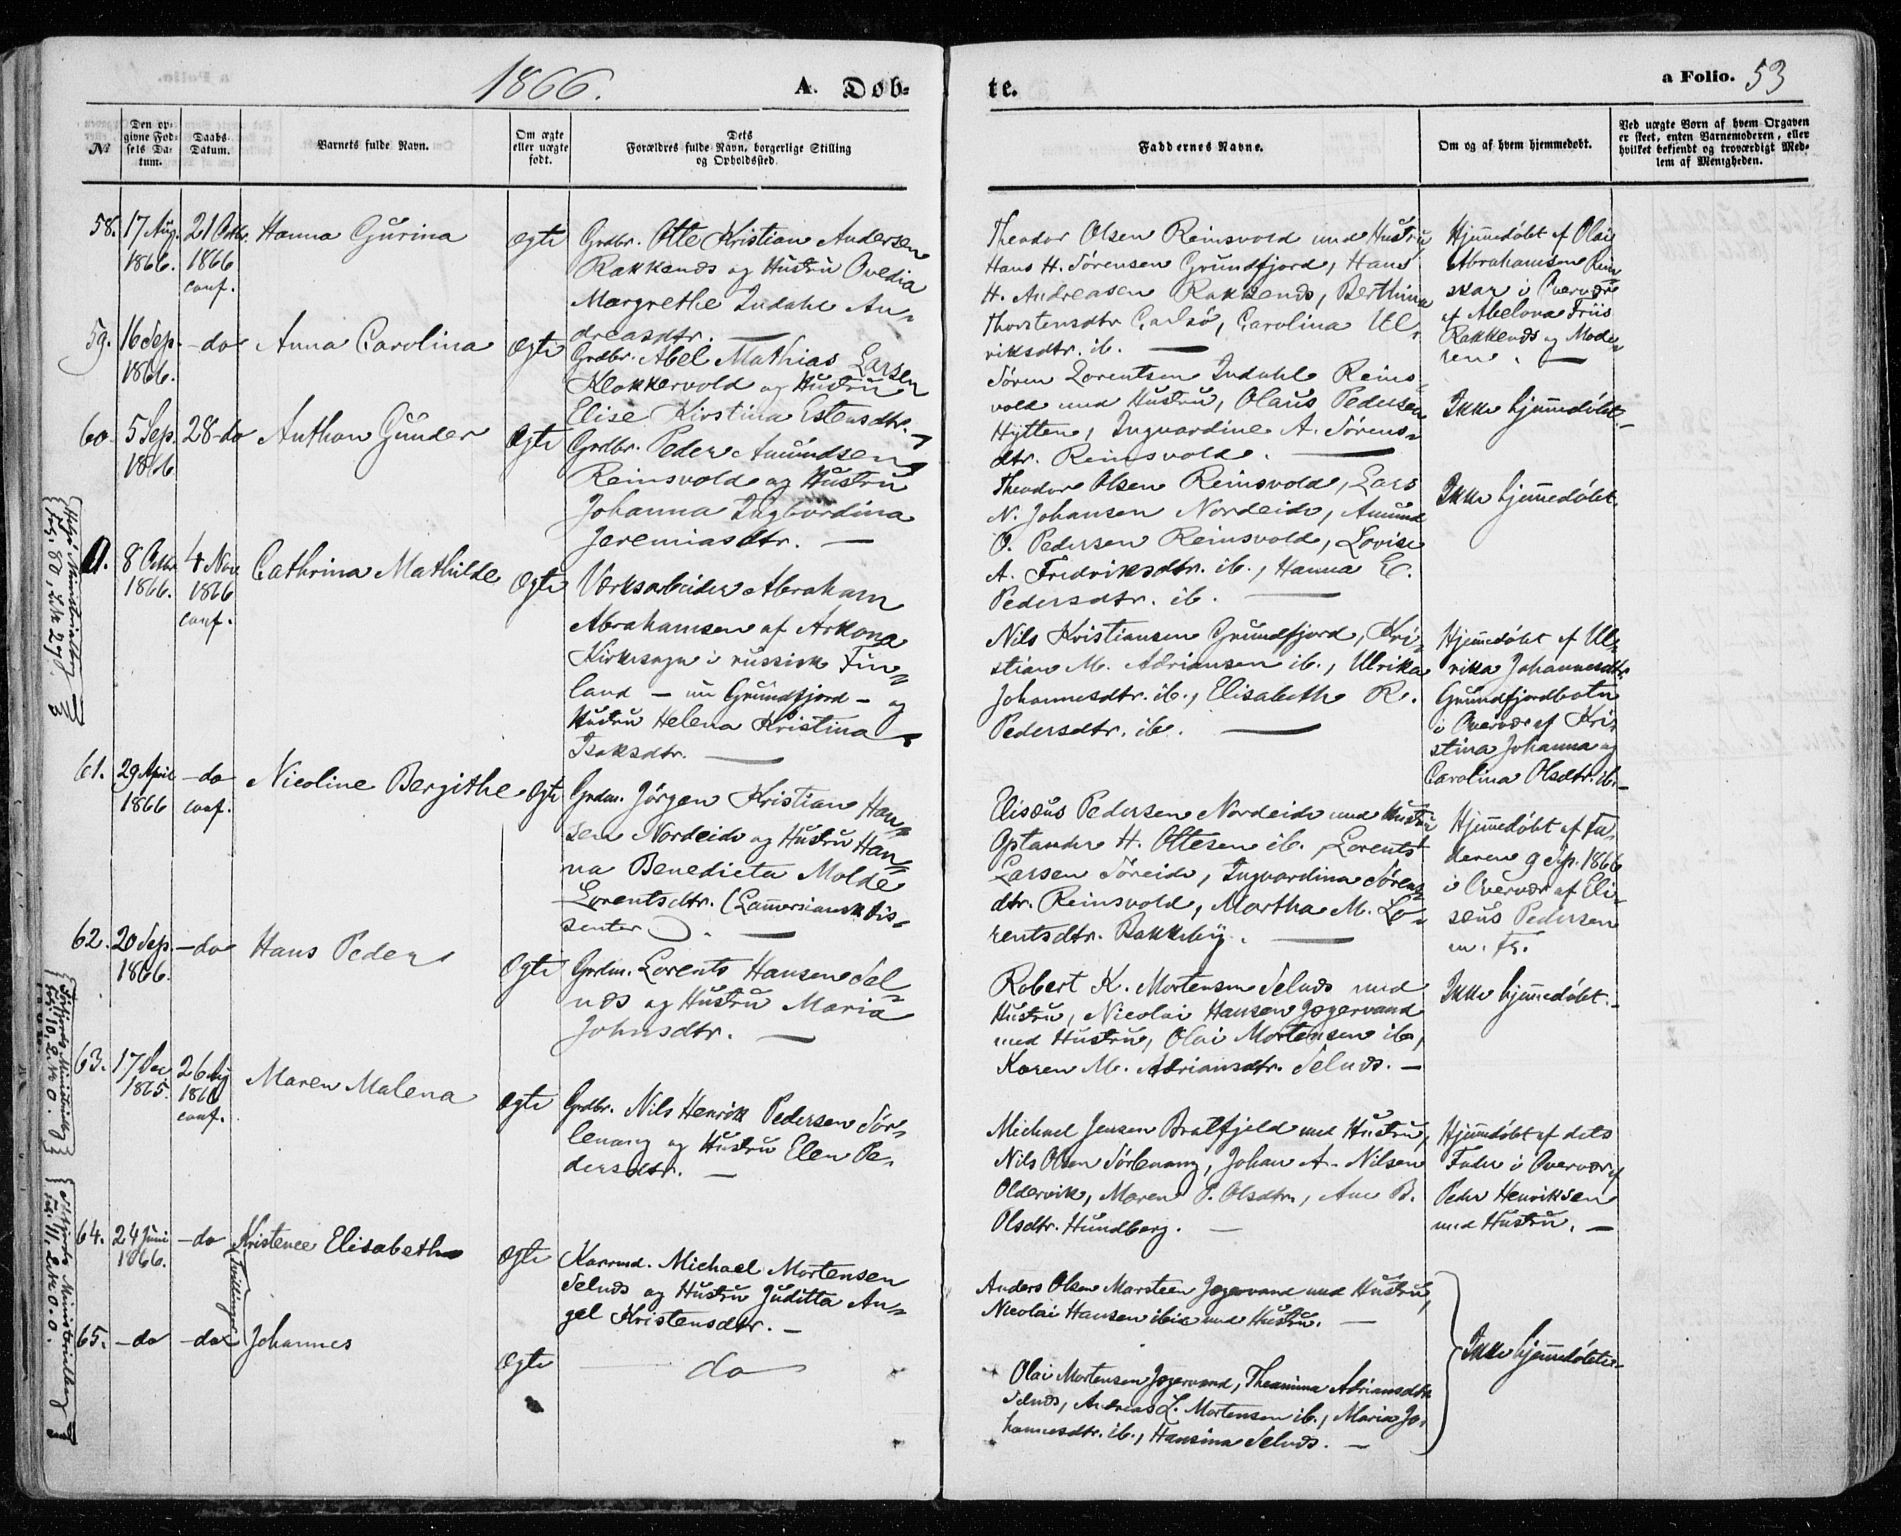 1866.
A. Døb-
te.
a Folio. 53
No
Den op-
givne Fød-
sels Da-
tum.
Daabs
Datum.
Barnets fulde Navn.
Om ægte
eller uægte
født.
Dets
Forældres fulde Navn, borgerlige Stilling
og Opholdssted.
Faddernes Navne.
Om og af hvem hjemmedøbt.
Ved uægte Børn af hvem Opgaven
er skeet, enten Barnemoderen, eller
hvilket bekjendt og troværdigt Med-
lem af Menigheden.
58.
17 Aug.
1866.
21 Octbr.
1866
conf.
Hanna Gurina
ægte
Grdbr. Otte Kristian Andersen
Rakkenæs og Hustru Ovedia
Margrethe Indahl An-
dreasdtr. —
Theodor Olsen Reinsvold med Hustru
Hans H. Sørensen Grundfjord, Hans
H. Andreasen Rakkenæs, Berthina
Thorstensdtr Carlsø, Carolina Ul-
riksdtr. ib. —
Hjemmedøbt af Olai
Abrahamsen Rein-
skar i Overvær
af Abelona Friis
Rakkenæs og Mode-
ren. —
59.
16 Sep.
1866.
-do
Anna Carolina
ægte
Grdbr. Abel Mathias Larsen
Klokkervold og Hustru
Elise Kirstina Estensdtr.
Søren Lorentsen Indahl Reins-
vold med Hustru, Olaus Pedersen
Hytten, Ingvardine A. Sørens-
dtr. Reinsvold. —
Ikke hjemmedøbt.
60.
5 Sep.
1866
28-do
Anthon Gunder
ægte
Grdbr. Peder Amundsen
Reinsvold og Hustru
Johanna Ingbordina
Jeremiasdtr. —
Theodor Olsen Reinsvold, Lars
N. Johansen Nordeide, Amund
O. Pedersen Reinsvold, Lovise
A. Fredriksdtr. ib., Hanna E.
Pedersdtr. ib. —
Ikke hjemmedøbt.
0.
8 Octbr.
1866.
4 Nov.
1866
conf.
Cathrina Mathilde
ægte
Værksarbeider Abraham
Abrahamsen af Arkona
Kirkesogn i russisk Fin-
land — nu Grundfjord — og
Hustru Helena Kristina
Isaksdtr. —
Nils Kristiansen Grundfjord, Kri-
stian M. Adriansen ib., Ulrika
Johannesdtr. ib., Elisabeth R.
Pedersdtr. ib. —
Hjemmedøbt af Ul-
rika Johannesdtr
Grundfjordbotn
i Overvær af Kri-
stina Johanna og
Carolina Olsdtr. ib.
61.
29 April
1866
-do
conf.
Nicoline Bergithe
ægte
Grdm. Jørgen Kristian Han-
sen Nordeide og Hustru Han-
na Benedicta Molde
Lorentsdtr. (Lammersiansk Dis-
senter). —
Elisæus Pedersen Nordeide med Hustru
Optander H. Ottesen ib. Lorents
Larsen Søreide, Ingvardina Sørens-
dtr. Reinsvold, Martha M. Lo-
rentsdtr. Bakkeby. —
Hjemmedøbt af Fa-
deren 9 Sep. 1866
i Overvær af Eli-
sæus Pedersen
m. Fr.
62.
20 Sep.
1866.
-do
Hans Peder
ægte
Grdm. Lorents Hansen Sel-
næs og Hustru Maria
Johnsdtr. —
Robert K. Mortensen Selnæs med
Hustru, Nicolai Hansen Jægervand
med Hustru, Olai Mortensen ib.,
Karen M. Adriansdtr. Selnæs. —
Ikke hjemmedøbt.
63.
17 Dec
1865.
26 Aug
1866
conf.
Maren Malena
ægte
Grdbr. Nils Henrik Pedersen Sør-
lenang og Hustru Elen Pe-
dersdtr. —
Michael Jensen Bratfjeld med Hustru,
Nils Olsen Sørlenang, Johan A. Nilsen
Oldervik, Maren P. Olsdtr., Ane B.
Olsdtr. Hundberg. —
Hjemmedøbt af dets
Fader i Overvær af
Peder Henriksen
med Hustru. —
64.
24 Juni
1866.
-do
Kristence Elisabeth
Tvillinger
ægte
Karmd. Michael Mortensen
Selnæs og Hustru Juditta An-
gel Kristensdtr. —
Anders Olsen Marsteen Jægervand med Hustru,
Nicolai Hansen ibid med Hustru. —
65.
-do
-do
Johannes
ægte
do
Olai Mortensen Jægervand, Theanna Adriansdtr.
Selnæs, Andreas L. Mortensen ib., Maria Jo-
hannesdtr. ib., Hansina Selnæs. —
Ikke hjemmedøbte.